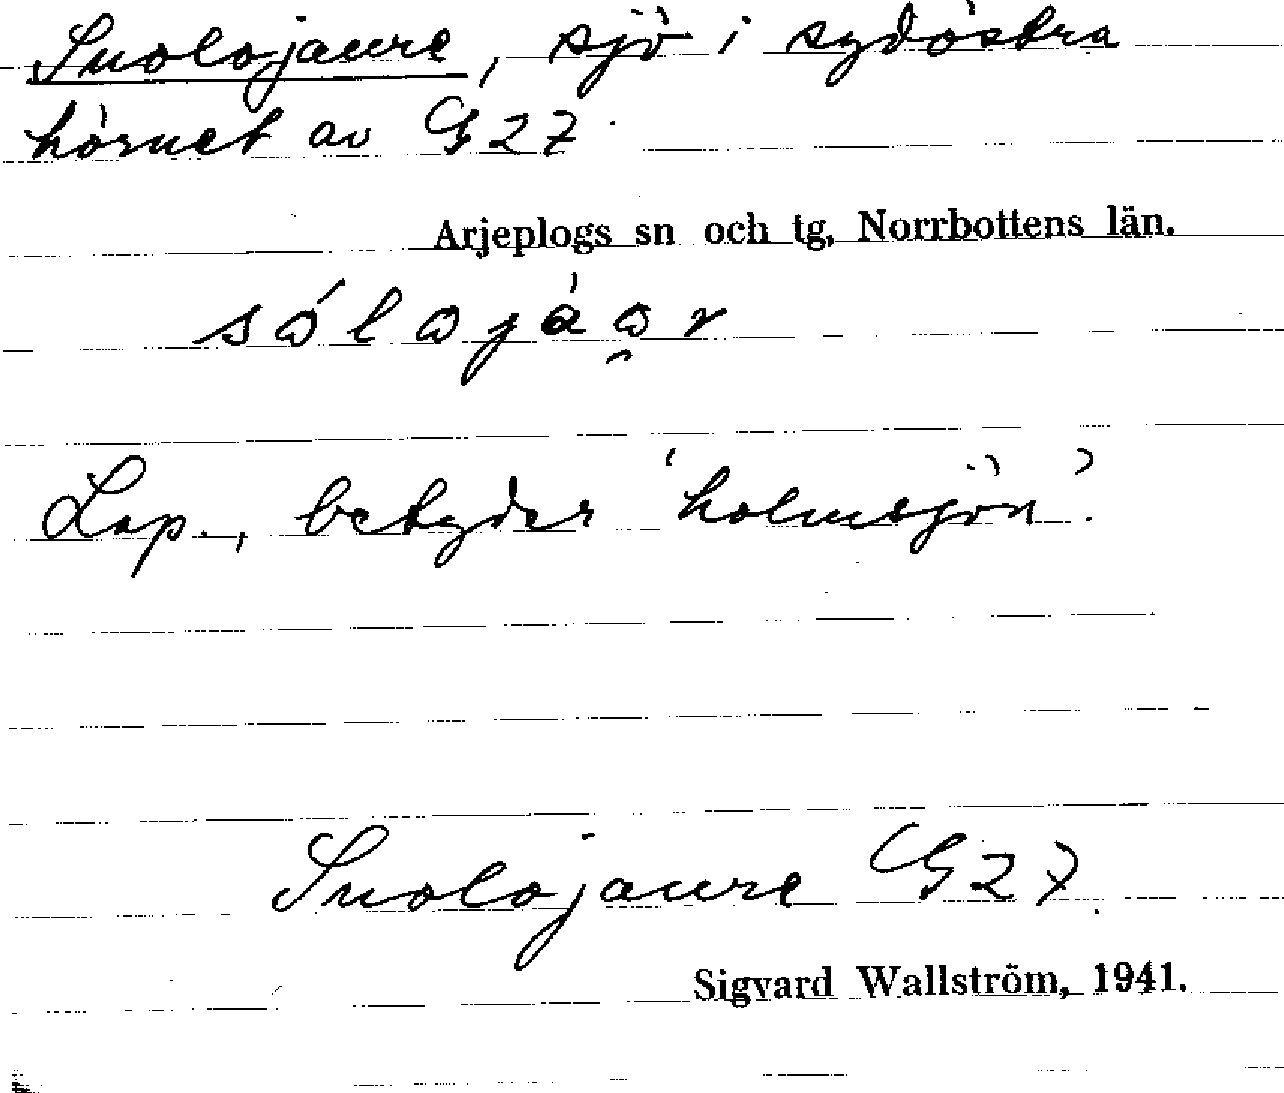 Suolojaure, sjö i sydöstra
hörnet av G 27.
Arjeplogs sn och tg, Norrbottens län.
sólojáo̯r
Lap., betyder 'holmsjön'.
Suolojaure G 27.
Sigvard Wallström, 1941.